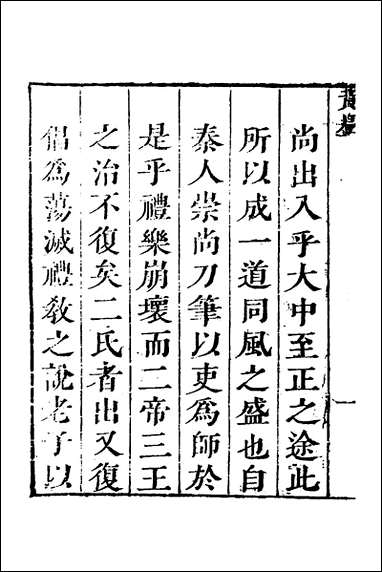 尚出入乎大中至正之途此
所以成一道同風之盛也自
秦人崇尚刀筆以吏為師於
是乎禮樂崩壞而二帝三王
之治不復矣二氏者出又復
倡為蕩滅禮教之說老子以